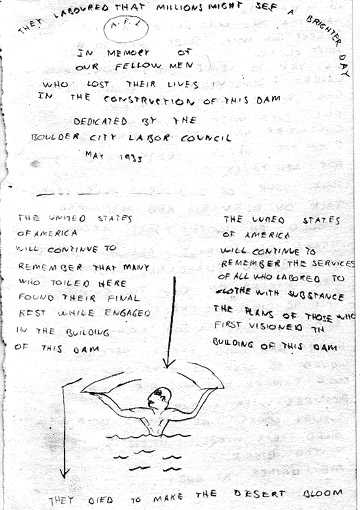 THEY LABOURED THAT MILLIONS MIGHT SEE A BRIGHTER DAY
A.F.L
IN MEMORY OF
OUR FELLOW MEN
WHO LOST THEIR LIVES IN
IN THE CONSTRUCTION OF THIS DAM
DEDICATED BY THE
BOULDER CITY LABOR COUNCIL
MAY 1935
THE UNITED STATES
OF AMERICA
WILL CONTINUE TO
REMEMBER THAT MANY
WHO TOILED HERE
FOUND THEIR FINAL
REST WHILE ENGAGED
IN THE BUILDING
OF THIS DAM
THE UNITED STATES
OF AMERICA
WILL CONTINUE TO
REMEMBER THE SERVICES
OF ALL WHO LABORED TO
CLOTHE WITH SUBSTANCE
THE PLANS OF THOSE WHO
FIRST VISIONED TH
BUILDING OF THIS DAM
THEY DIED TO MAKE THE DESERT BLOOM